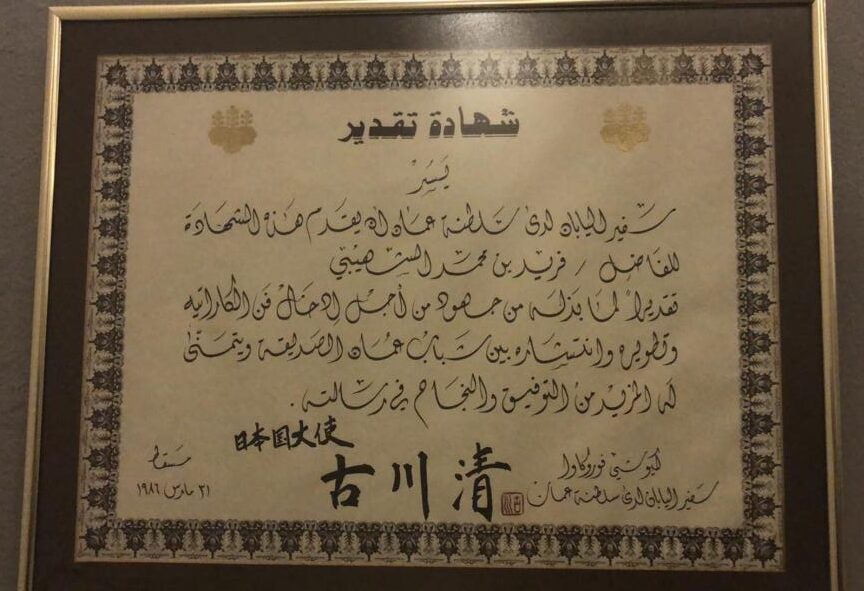 شهادة تقدير
يَسُرّ
سفير اليابان لدى سلطنة عمان ان يقدم هذه الشهادة
للفاضل / فريد بن محمد الشهيبي
تقديراً لما بذله من جهود من أجل إدخال فن الكاراتيه
وتطويره وانتشاره بين شباب عُمان الصديقة ويتمنّى
له المزيد من التوفيق والنجاح في رسالته .
日本国大使
古川清
كيوشي فوروكاوا
سفير اليابان لدى سلطنة عمان
مسقط
٢١ مارس ١٩٨٦